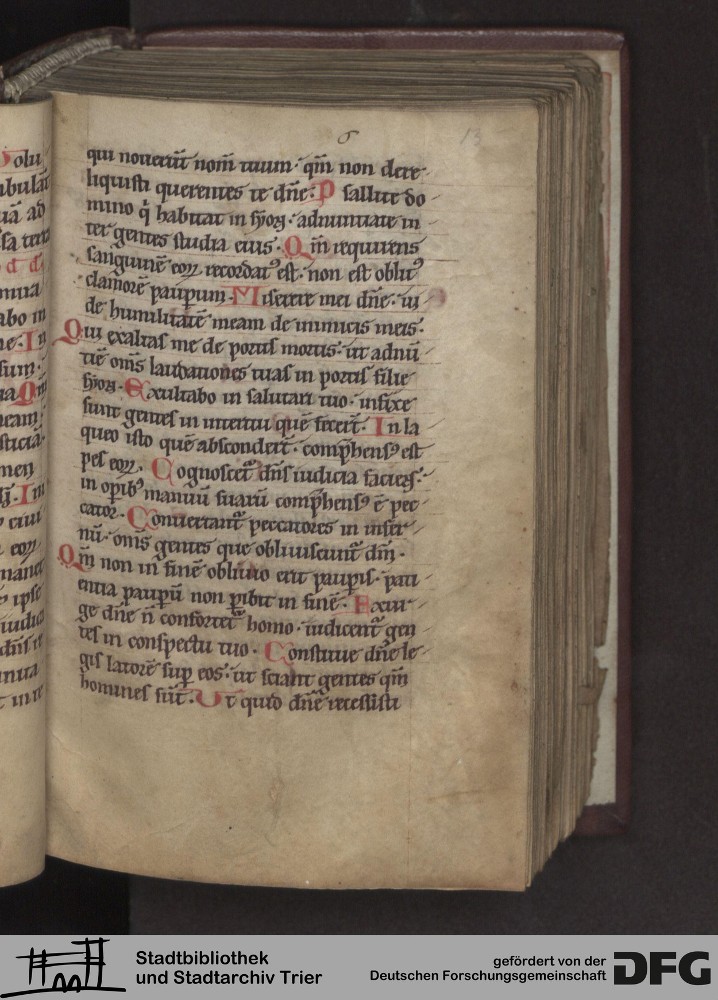 6 13
qui nouerūt nom̄ tuum · qm̄ non dere
liquisti querentes te dn̄e · Psallite do
mino q̇ habitat in syoꝫ · adnuntiate in
ter gentes studia eius · Qm̄ requirens
sanguinē eoꝝ recordatꝰ est · non est oblitꝰ
clamorē paupeꝝum · Miserere mei dn̄e · ui
de humilitatē meam de inimicis meis ·
Qui exaltas me de portis mortis · ut adnū
tiē om̄s laudationes tuas in portis filie
syoꝫ · Exultabo in salutari tuo · infixe
sunt gentes in interitu quē fecer̄t · In la
queo isto quē absconder̄t · cōp̄hensꝰ est
pes eoꝝ · Cognoscet᷑ dn̄s iudicia faciēs ·
in opibꝰ manuū suarū comp̄hensꝰ ē pec
cator · Conuertant᷑ peccatores in infer
nū · om̄s gentes que obliuiscunt᷑ dm̄ ·
Qm̄ non in finē obliuio erit pauꝑis · pati
entia pauꝑū non ꝑibit in finē · Exur
ge dn̄e n̄ confortet᷑ homo · iudicent᷑ gen
tes in conspectu tuo · Constitue dn̄e le
gis latorē suꝑ eos · ut sciant gentes qm̄
homines sūt · Ut quid dn̄e recessisti
Stadtbibliothek
und Stadtarchiv Trier
gefördert von der
Deutschen Forschungsgemeinschaft DFG